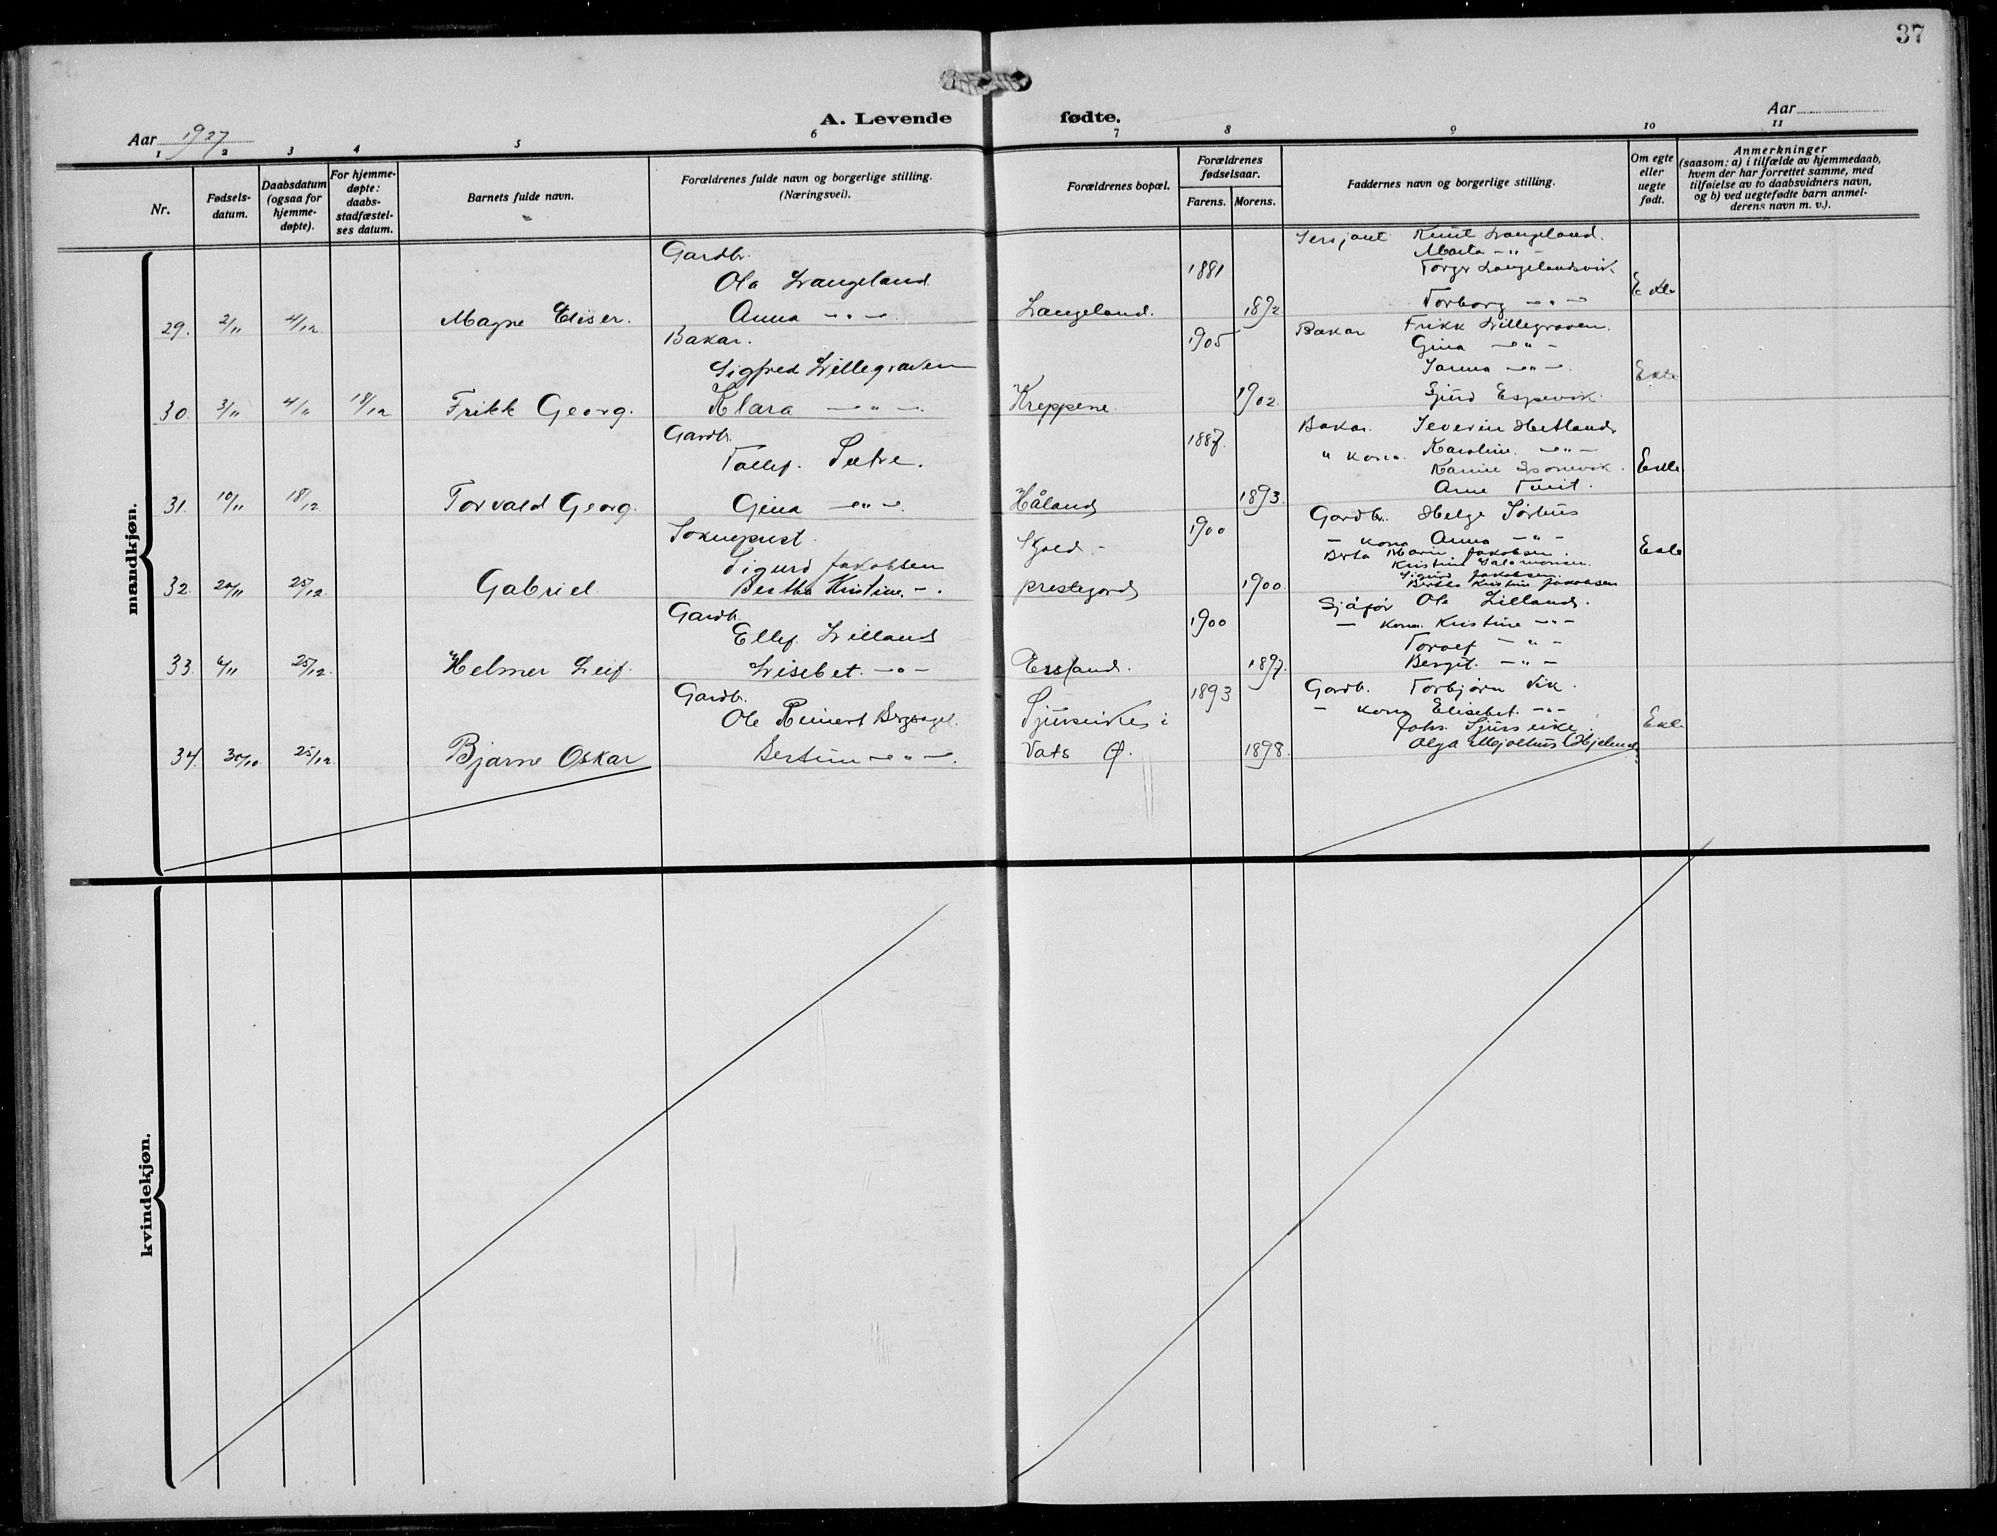 37
A. Levende fødte.
Aar 1927
Aar
1 2 3 4 5 6 7 8 9 10 11
Nr.
Fødsels-
datum.
Daabsdatum
(ogsaa for
hjemme-
døpte).
For hjemme-
døpte:
daabs-
stadfæstel-
ses datum.
Barnets fulde navn.
Forældrenes fulde navn og borgerlige stilling.
(Næringsvei).
Forældrenes bopæl.
Forældrenes
fødselsaar.
Farens. Morens.
Faddernes navn og borgerlige stilling.
Om egte
eller
uegte
født.
Anmerkninger
(saasom: a) i tilfælde av hjemmedaab,
hvem der har forrettet samme, med
tilføielse av to daabsvidners navn,
og b) ved uegtefødte barn anmel-
derens navn m. v.).
mandkjøn.
Gardbr. Sersjant Knut Langeland.
Ola Langeland 1881 Marta -"-
Torgr Langelandsvik
29. 2/11 4/12 Magne Eliser. Anna -"- Langeland. 1892 Torborg -"- Ekte
Bakar. 1905 Bakar Frikk Lillegraven.
Sigfred Lillegraven Gina -"-
Janna -"-
30. 3/11 4/11 18/12 Frikk Georg. Klara -"- Kreppene. 1902. Sjurd Espevik. Ekte
Gardbr. 1887. Bakar. Severin Hetland
Tollef. Sætre. " kona. Karoline. -"-
31. 10/11 18/12 Torvald Georg. Gina -"- Håland 1893. Arne Tveit. Ekte
Sokneprest. Skjold - 1900 Gardbr. Helge Sørhus
Sigurd Jakobsen - kona Anna -"-
Berta Marie Jakobsen.
Kristine Salomonsen.
Sigurd Jakobsen
32. 20/11 25/12 Gabriel Bertha Kristine. -"- prestegard 1900. Bertha Kristine Jakobsen Ekte
Gardbr. 1900 Sjåfør Ola Lilland.
Ellef Lilland - kona Kristine -"-
Toralf -"-
33. 6/11 25/12. Helmer Leif. Lisebet. -"- Essland. 1897. Bergit. -"-
Gardbr. 1893 Gardb. Torbjørn Vik.
Ole Reinert Bergsagel. Sjurseike i - kona Elisebet. -"-
Johs. Sjurseike
34. 30/10 25/12. Bjarne Oskar Bertine -"- Vats Ø. 1898. Olga Mjølhus (Hjelmeland) Ekte
kvindekjøn.